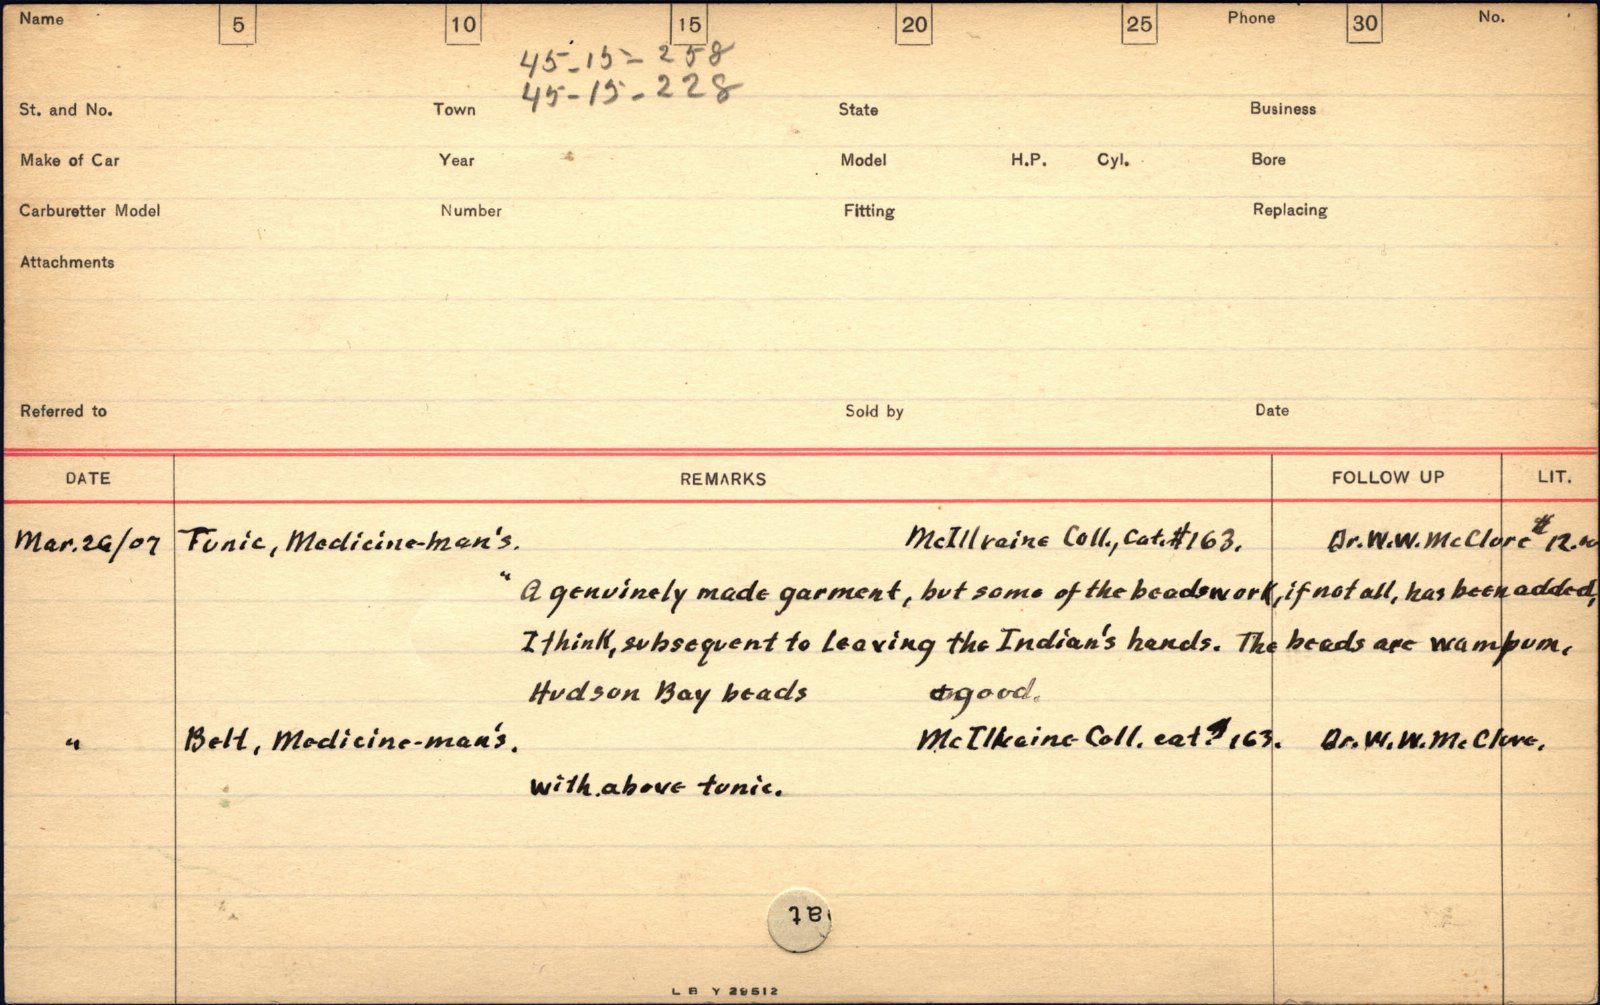 Name 5 10 15 20 25 Phone 30 No.
45-15-258
45-15-228
St. and No. Town State Business
Make of Car Year Model H.P. Cyl. Bore
Carburetter Model Number Fitting Replacing
Attachments
Referred to Sold by Date
DATE REMARKS FOLLOW UP LIT.
Mar.26/07 Tunic, Medicine-man's. McIllvaine Coll., Cat.#163. Dr.W.W.McClure #12.00
" A genuinely made garment, but some of the beadswork, if not all, has been added,
I think, subsequent to leaving the Indian's hands. The beads are wampum,
Hudson Bay beads good.
" Belt, Medicine-man's. Coll. cat.# 163. Dr.W.W.McClure.
with above tunic.
at
L B Y 29512